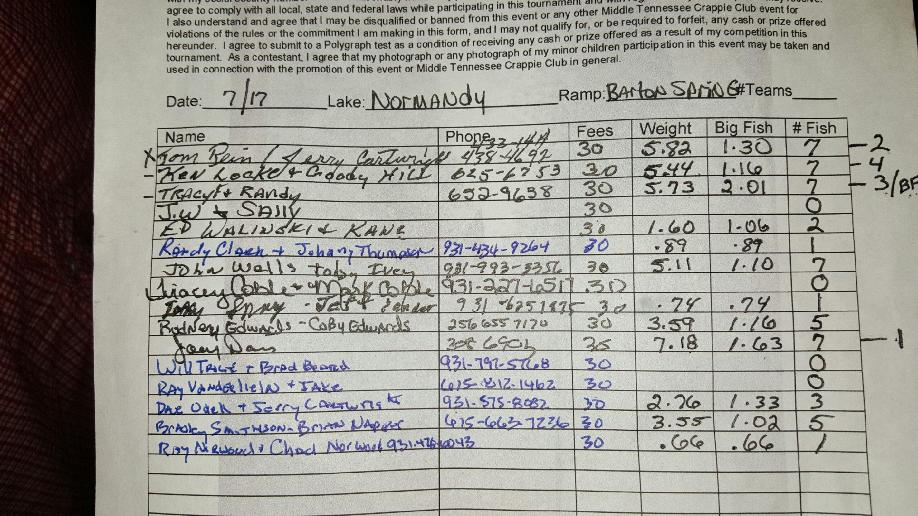 agree to comply with all local, state and federal laws while participating in this tournament and
I also understand and agree that I may be disqualified or banned from this event or any other Middle Tennessee Crappie Club event for
violations of the rules or the commitment I am making in this form, and I may not qualify for, or be required to forfeit, any cash or prize offered
hereunder. I agree to submit to a Polygraph test as a condition of receiving any cash or prize offered as a result of my competition in this
tournament. As a contestant, I agree that my photograph or any photograph of my minor children participation in this event may be taken and
used in connection with the promotion of this event or Middle Tennessee Crappie Club in general.
Date: 7/17 Lake: NORMANDY Ramp: BARTON SPRING #Teams
Name Phone Fees Weight Big Fish # Fish
X Tom Bein / Jerry Cartwright 438-4692 30 5.82 1.30 7 -2
- Ken Locke & Hill 625-6753 30 5.44 1.16 7 -4
- TRACY & RANDY 652-9638 30 5.73 2.01 7 -3/BF
J.W & SALLY 30 0
ED WALINSKI & KANE 30 1.60 1.06 2
Randy Clark + Johnny Thumpson 931-434-9264 30 .89 .89 1
John Wells Toby Ivey 931-993-3356 30 5.11 1.10 7
Cable & Mark Cable 931-227-6517 30 0
931-6251875 30 .74 .74 1
Rodney Edwards - Coby Edwards 256 655 7170 30 3.59 1.16 5
Joey 30 7.18 1.63 7 -1
Will + Brad Beard 931-797-5768 30 0
RAY + JAKE 615-812-1462 30 0
Odell + Jerry CARTWright 931-575-8082 30 2.76 1.33 3
Bradley SMITHSON - BRIAN 615-663-7236 30 3.55 1.02 5
Roy Norwood & Chad Norwood 30 .66 .66 1